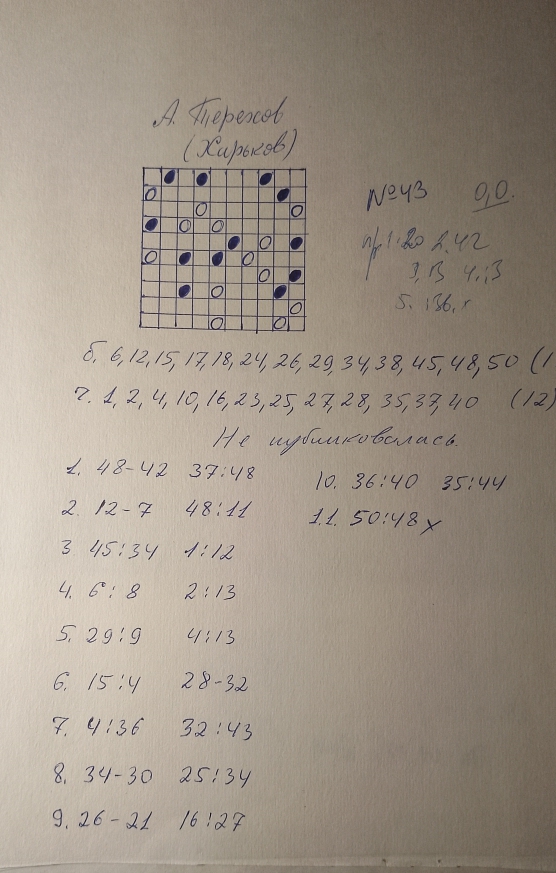 А. Терехов
(Харьков)
№43 0,0.
2,42
4.:3
5. :36,x
б. 6,12,15,17,18,24,26,29,34,38,45,48,50 (1
ч. 1,2,4,10,16,23,25,27,28,35,37,40 (12)
Не публиковалась.
1. 48-42 37:48
2. 12-7 48:11
3. 45:34 1:12
4. 6:8 2:13
5. 29:9 4:13
6. 15:4 28-32
7. 4:36 32:43
8. 34-30 25:34
9. 26-21 16:27
10. 36:40 35:44
11. 50:48 x